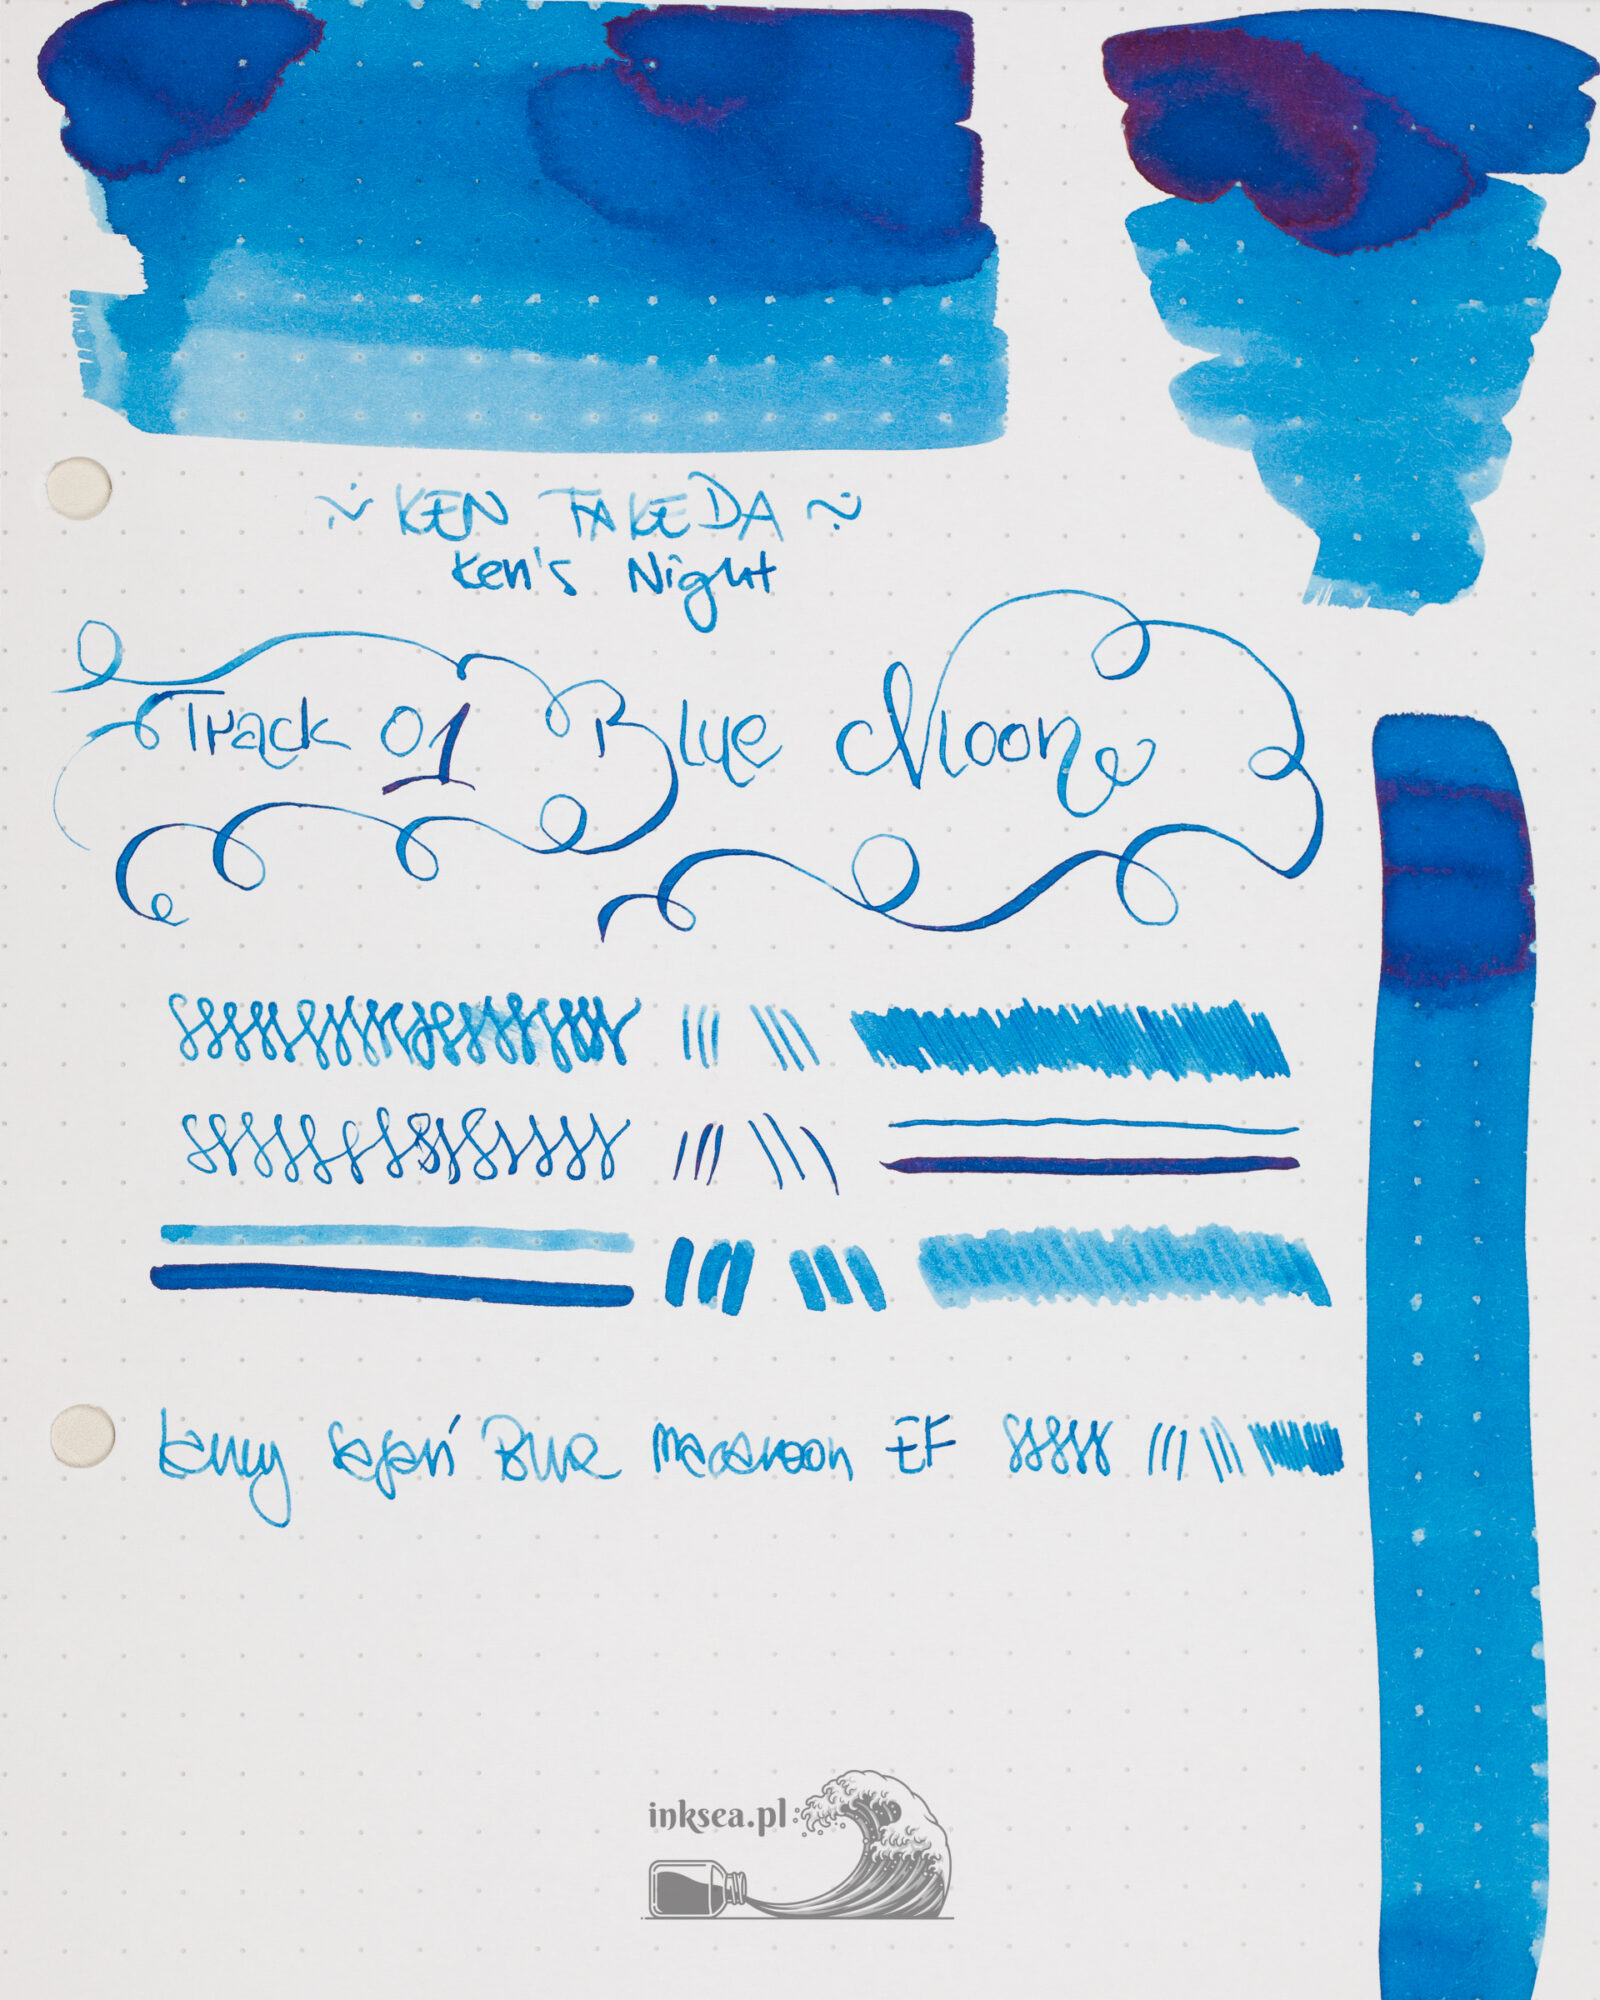 ~ KEN TAKEDA ~
Ken's Night
Track 01 Blue Moon
Lamy Safari Blue Macaroon EF
inksea.pl